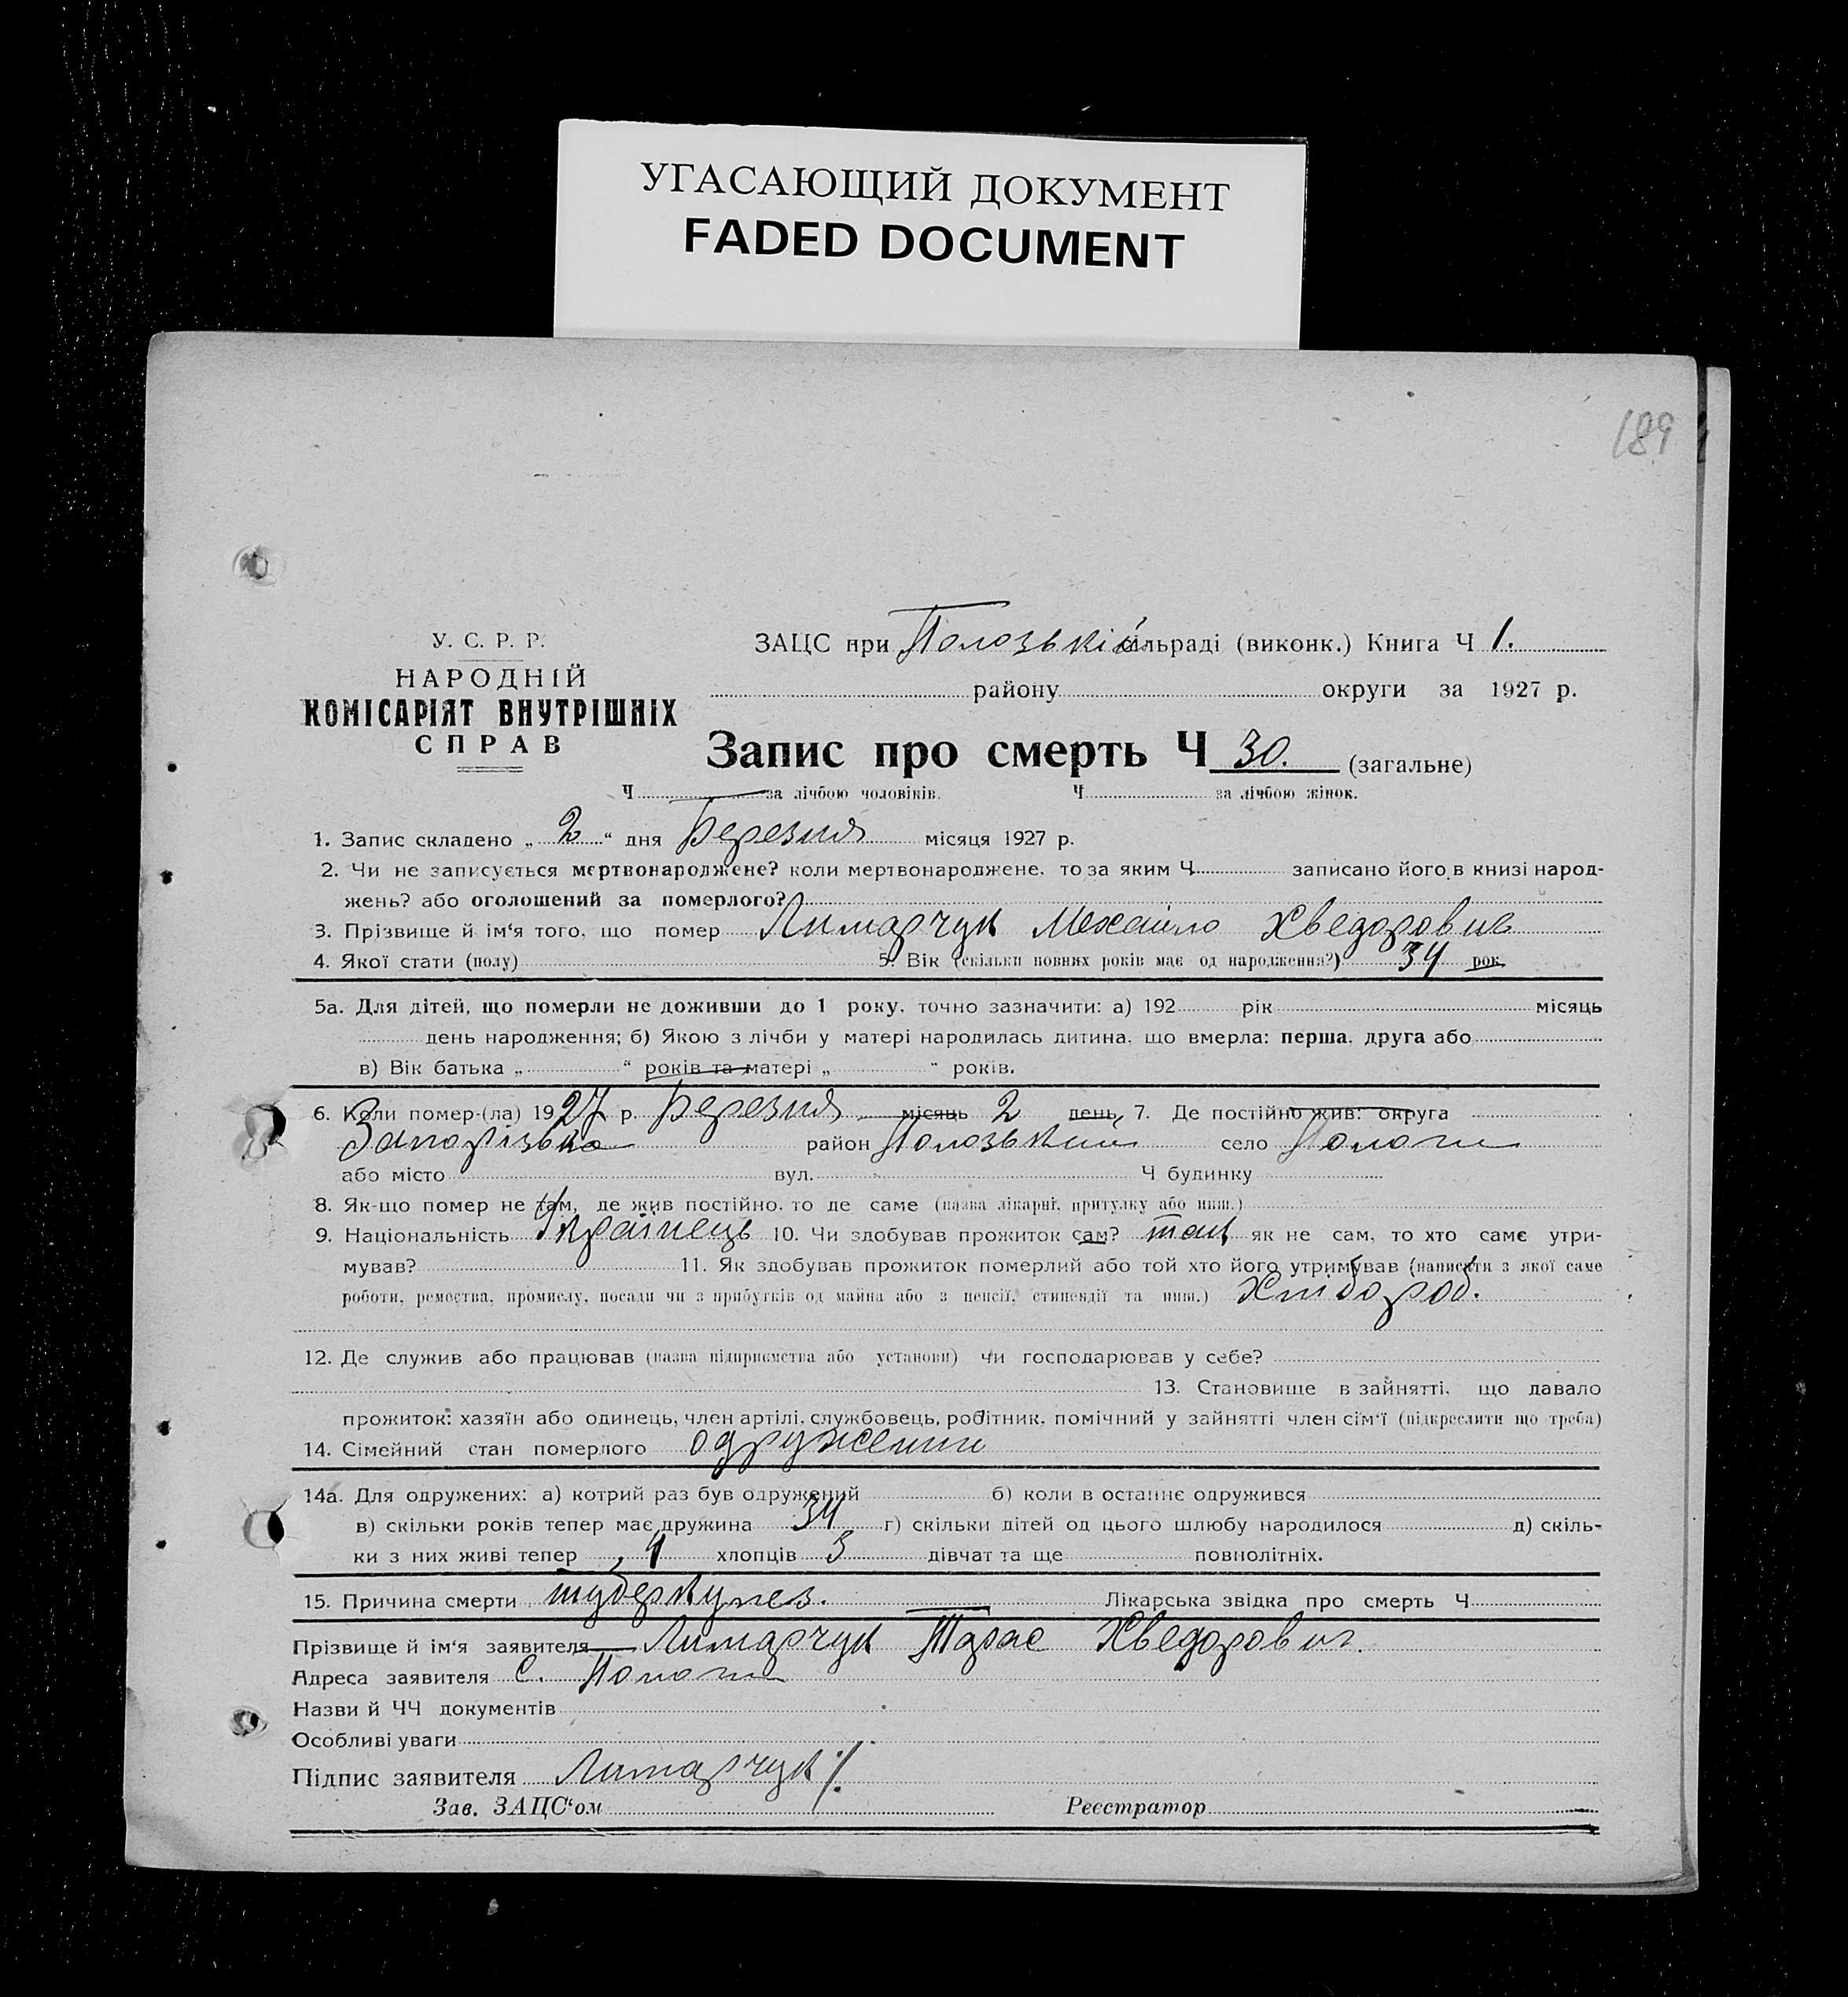 УГАСАЮЩИЙ ДОКУМЕНТ
FADED DOCUMENT
189
У. С. Р. Р.
НАРОДНІЙ
КОМІСАРІЯТ ВНУТРІШНІХ
СПРАВ
ЗАЦС при Пологській сільраді (виконк.) Книга Ч 1.
району округи за 1927 р.
Запис про смерть Ч 30. (загальне)
Ч за лічбою чоловіків. Ч за лічбою жінок.
1. Запис складено „ 2 “ дня Березня місяця 1927 р.
2. Чи не записується мертвонароджене? коли мертвонароджене, то за яким Ч записано його в книзі народ-
жень? або оголошений за померлого?
3. Прізвище й ім‘я того, що помер Лимарчук Мехайло Хведорович
4. Якої стати (полу) 5. Вік (скільки повних років має од народження?) 34 рок
5а. Для дітей, що померли не доживши до 1 року, точно зазначити: а) 192 рік місяць
день народження; б) Якою з лічби у матері народилась дитина, що вмерла: перша, друга або
в) Вік батька „ “ років та матері „ “ років.
6. Коли помер-(ла) 1927 р. Березня місяць 2 день, 7. Де постійно жив: округа
Запорізька район Полозький село Пологи
або місто вул. Ч будинку
8. Як-що помер не там, де жив постійно, то де саме (назва лікарні, притулку або инш.)
9. Національність Українець 10. Чи здобував прожиток сам? так як не сам, то хто саме утри-
мував? 11. Як здобував прожиток померлий або той хто його утримував (написати з якої саме
роботи, ремества, промислу, посади чи з прибутків од майна або з пенсії, стипендії та инш.) Хлібороб.
12. Де служив або працював (назва підприємства або установи) чи господарював у себе?
13. Становище в зайнятті, що давало
прожиток: хазяїн або одинець, член артілі, службовець, робітник, помічний у зайнятті член сім‘ї (підкреслити що треба)
14. Сімейний стан померлого одружений
14а. Для одружених: а) котрий раз був одружений б) коли в останнє одружився
в) скільки років тепер має дружина 34 г) скільки дітей од цього шлюбу народилося д) скіль-
ки з них живі тепер 1 хлопців 3 дівчат та ще повнолітніх.
15. Причина смерти туберкулез. Лікарська звідка про смерть Ч
Прізвище й ім‘я заявителя Лимарчук Тарас Хведорович.
Адреса заявителя с. Пологи
Назви й ЧЧ документів
Особливі уваги
Підпис заявителя Лимарчук
Зав. ЗАЦС‘ом Реєстратор